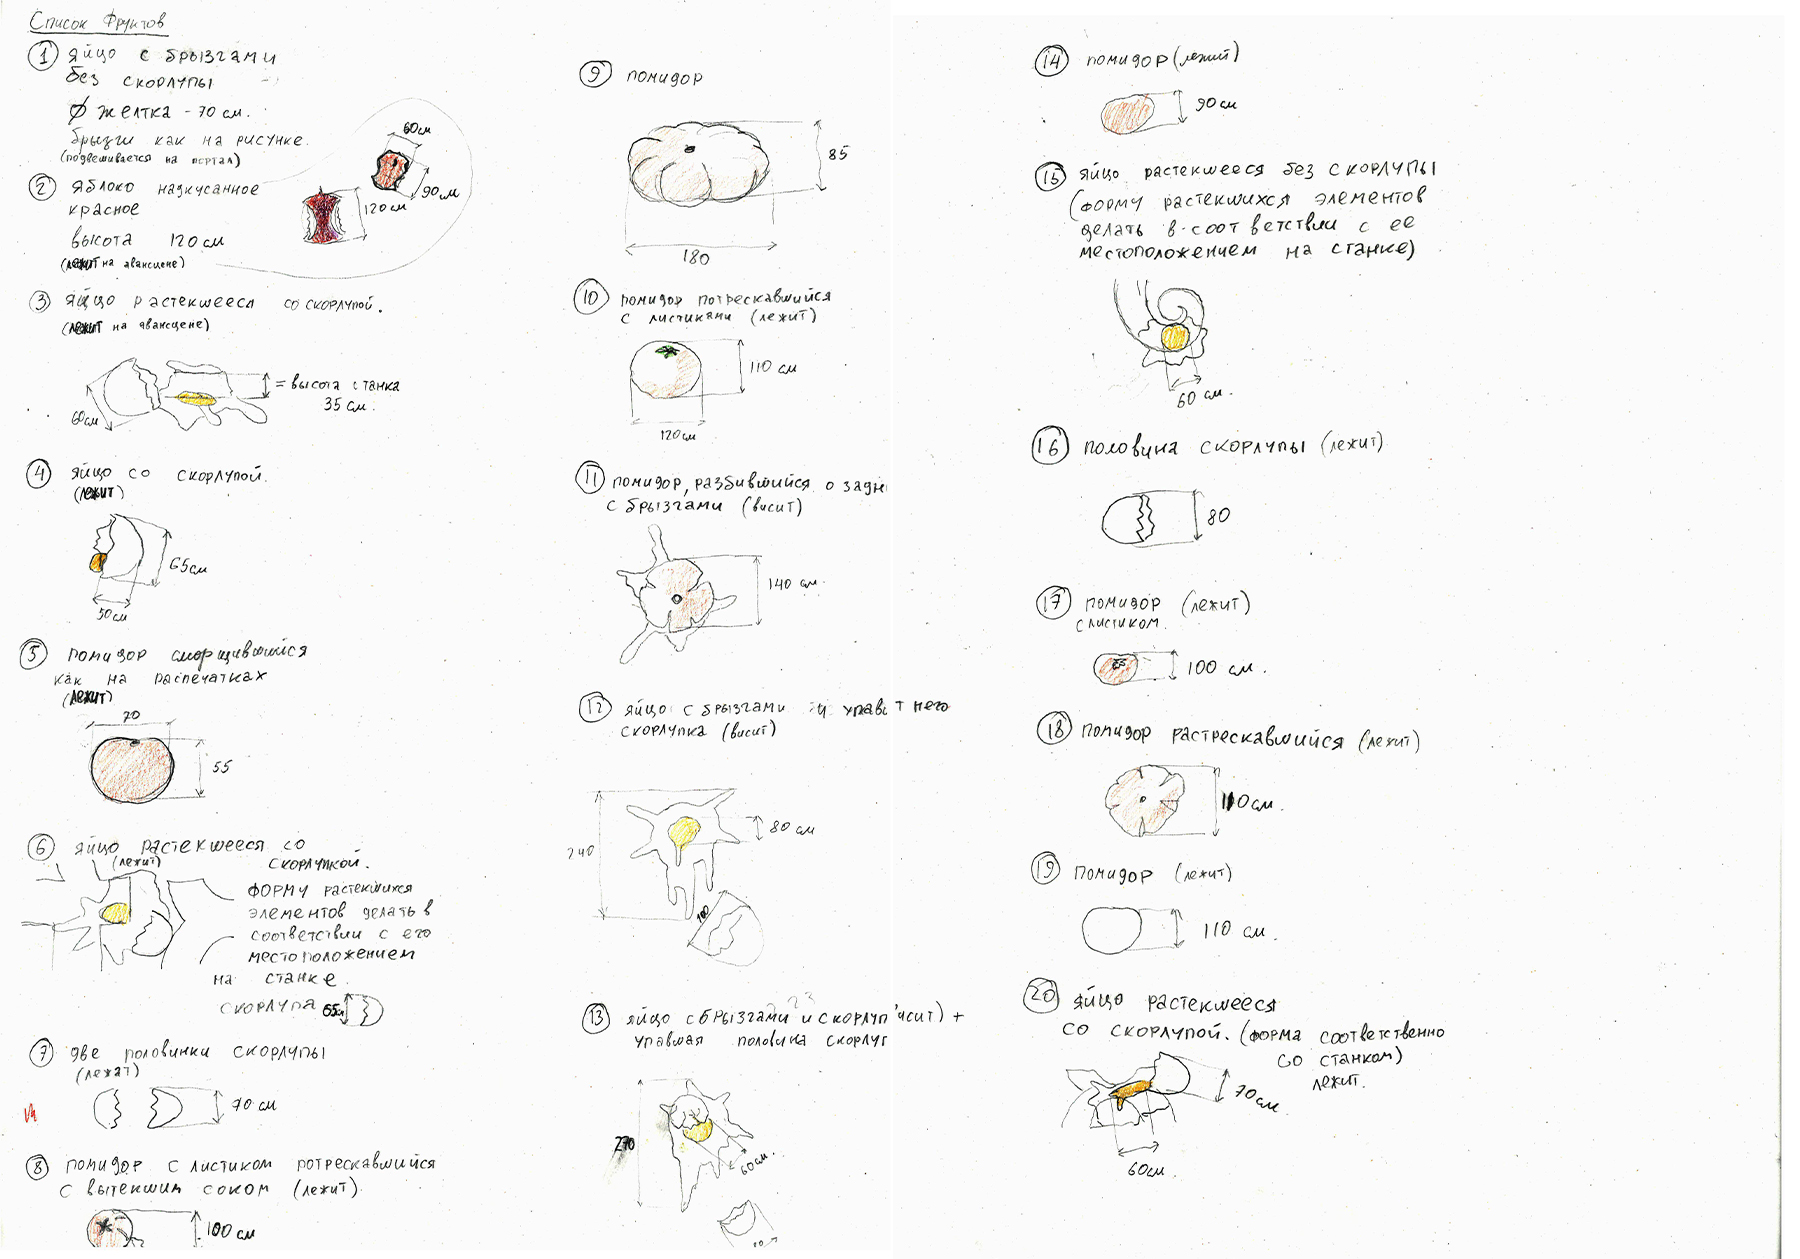 Список фруктов
① яйцо с брызгами
без скорлупы
Ø желтка - 70 см.
брызги как на рисунке.
(подвешивается на портал)
② яблоко надкусанное
красное
высота 120 см
(лежит на авансцене)
60см
90см
120см
③ яйцо растекшееся со скорлупой.
(лежит на авансцене)
60см
= высота станка
35 см.
④ яйцо со скорлупой.
(лежит)
65см
50см
⑤ помидор сморщившийся
как на распечатках
(лежит)
70
55
⑥ яйцо растекшееся со
(лежит) скорлупкой.
форму растекшихся
элементов делать в
соответствии с его
местоположением
на станке.
скорлупа 65см
⑦ две половинки скорлупы
(лежат)
70 см
⑧ помидор с листиком потрескавшийся
с вытекшим соком (лежит)
100 см
⑨ помидор
85
180
⑩ помидор потрескавшийся
с листиками (лежит)
110 см
120см
⑪ помидор, разбившийся о задн
с брызгами (висит)
140 см.
⑫ яйцо с брызгами и упав т него
скорлупка (висит)
240
80 см
100
⑬ яйцо с брызгами и скорлуп исит) +
упавшая половина скорлуп
270
60см.
⑭ помидор (лежит)
90см
⑮ яйцо растекшееся без скорлупы
(форму растекшихся элементов
делать в соответствии с ее
местоположением на станке)
60 см.
⑯ половина скорлупы (лежит)
80
⑰ помидор (лежит)
с листиком.
100 см.
⑱ помидор растрескавшийся (лежит)
110см.
⑲ помидор (лежит)
110 см.
⑳ яйцо растекшееся
со скорлупой. (форма соответственно
со станком)
лежит.
70см
60см